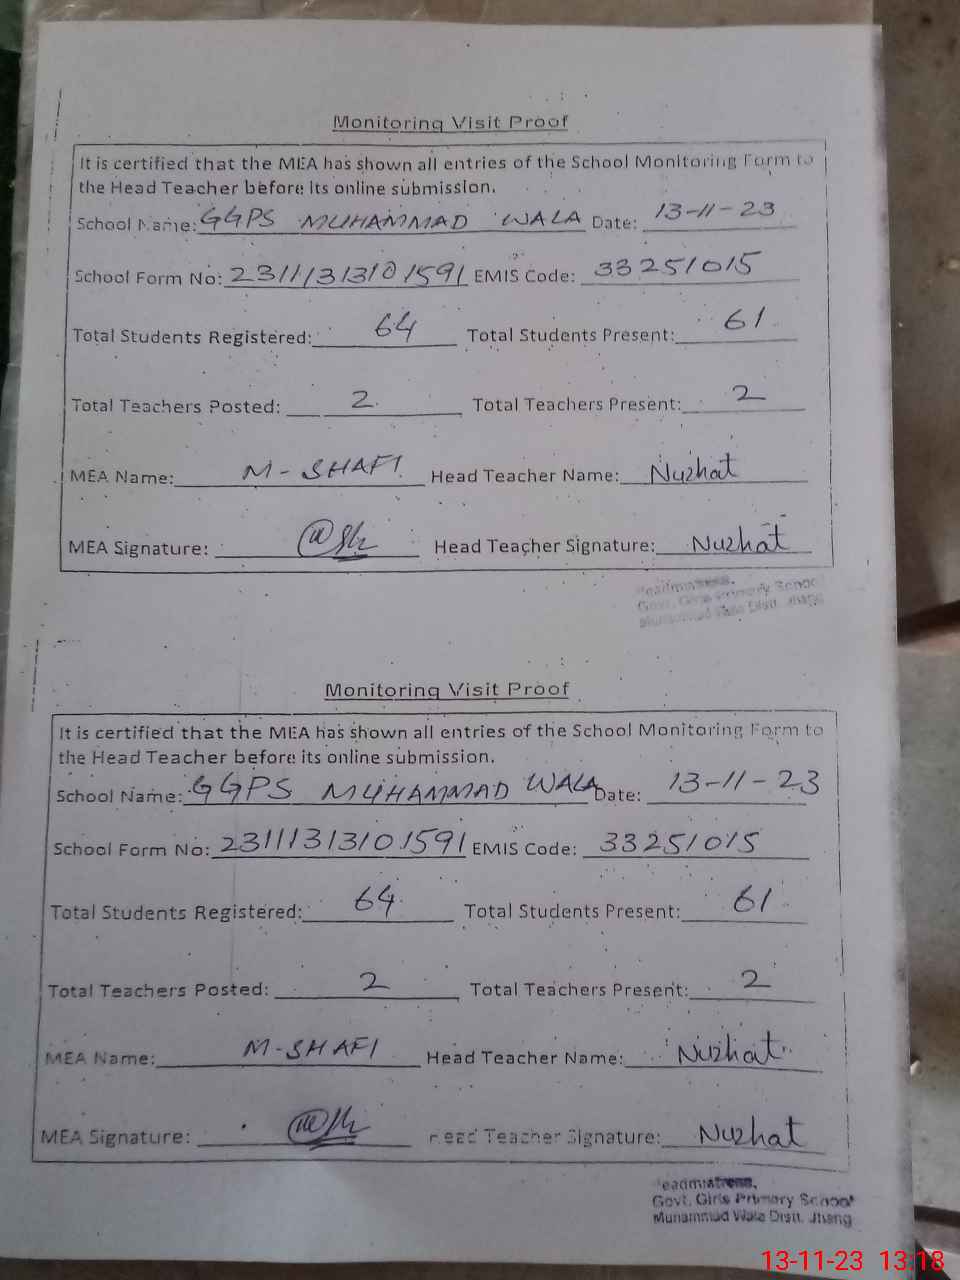 Monitoring Visit Proof
It is certified that the MEA has shown all entries of the School Monitoring Form to
the Head Teacher before its online submission.
School Name: GGPS MUHAMMAD WALA Date: 13-11-23
School Form No: 23111313101591 EMIS Code: 33251015
Total Students Registered: 64 Total Students Present: 61
Total Teachers Posted: 2 Total Teachers Present: 2
MEA Name: M-SHAFI Head Teacher Name: Nuzhat
MEA Signature: Head Teacher Signature: Nuzhat
Headmistress,
Govt. Girls Primary School
Muhammad Wala Distt. Jhang
Monitoring Visit Proof
It is certified that the MEA has shown all entries of the School Monitoring Form to
the Head Teacher before its online submission.
School Name: GGPS MUHAMMAD WALA Date: 13-11-23
School Form No: 23111313101591 EMIS Code: 33251015
Total Students Registered: 64 Total Students Present: 61
Total Teachers Posted: 2 Total Teachers Present: 2
MEA Name: M-SHAFI Head Teacher Name: Nuzhat
MEA Signature: Head Teacher Signature: Nuzhat
Headmistress,
Govt. Girls Primary School
Muhammad Wala Distt. Jhang
13-11-23 13:18